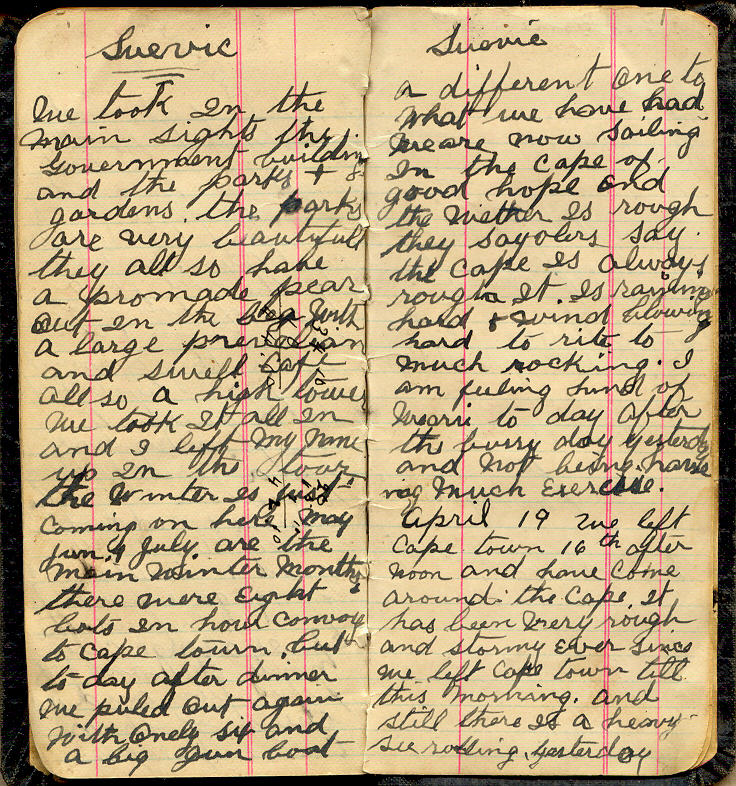 Suevic
We took In the
main sights the
Government building
and the parks + &
gardens. the parks
are very beautifull
they all so have
a promade pear
out In the Sea With
a large
and swell Cafe
all so a high tower
We took It all In
and I left My Name
up In the tour
the Winter Is just
coming on here May
jun & July are the
Main Winter Months
there were Eight
bots In hour convoy
to Cape tourn. but
to day after dinner
We puled out again
With Onely six and
a big gun boat
Suevic
a different one to
what we have had
We are now sailing
In the Cape of
good hope and
the Wether Is rough
they sayolers say.
the Cape Is always
rough It. Is raining
hard & wind blowing
hard to rite to
Much rocking. I
am feeling kind of
to day after
the burry day yesterdy
and Not being have
ing Much Exercise.
April 19 We left
Cape town 16th after
Noon and have Come
around the Cape It
has been Very rough
and stormy Ever Since
We left Cape town till
this morning. and
still there Is a heavy
see rolling. yesterday